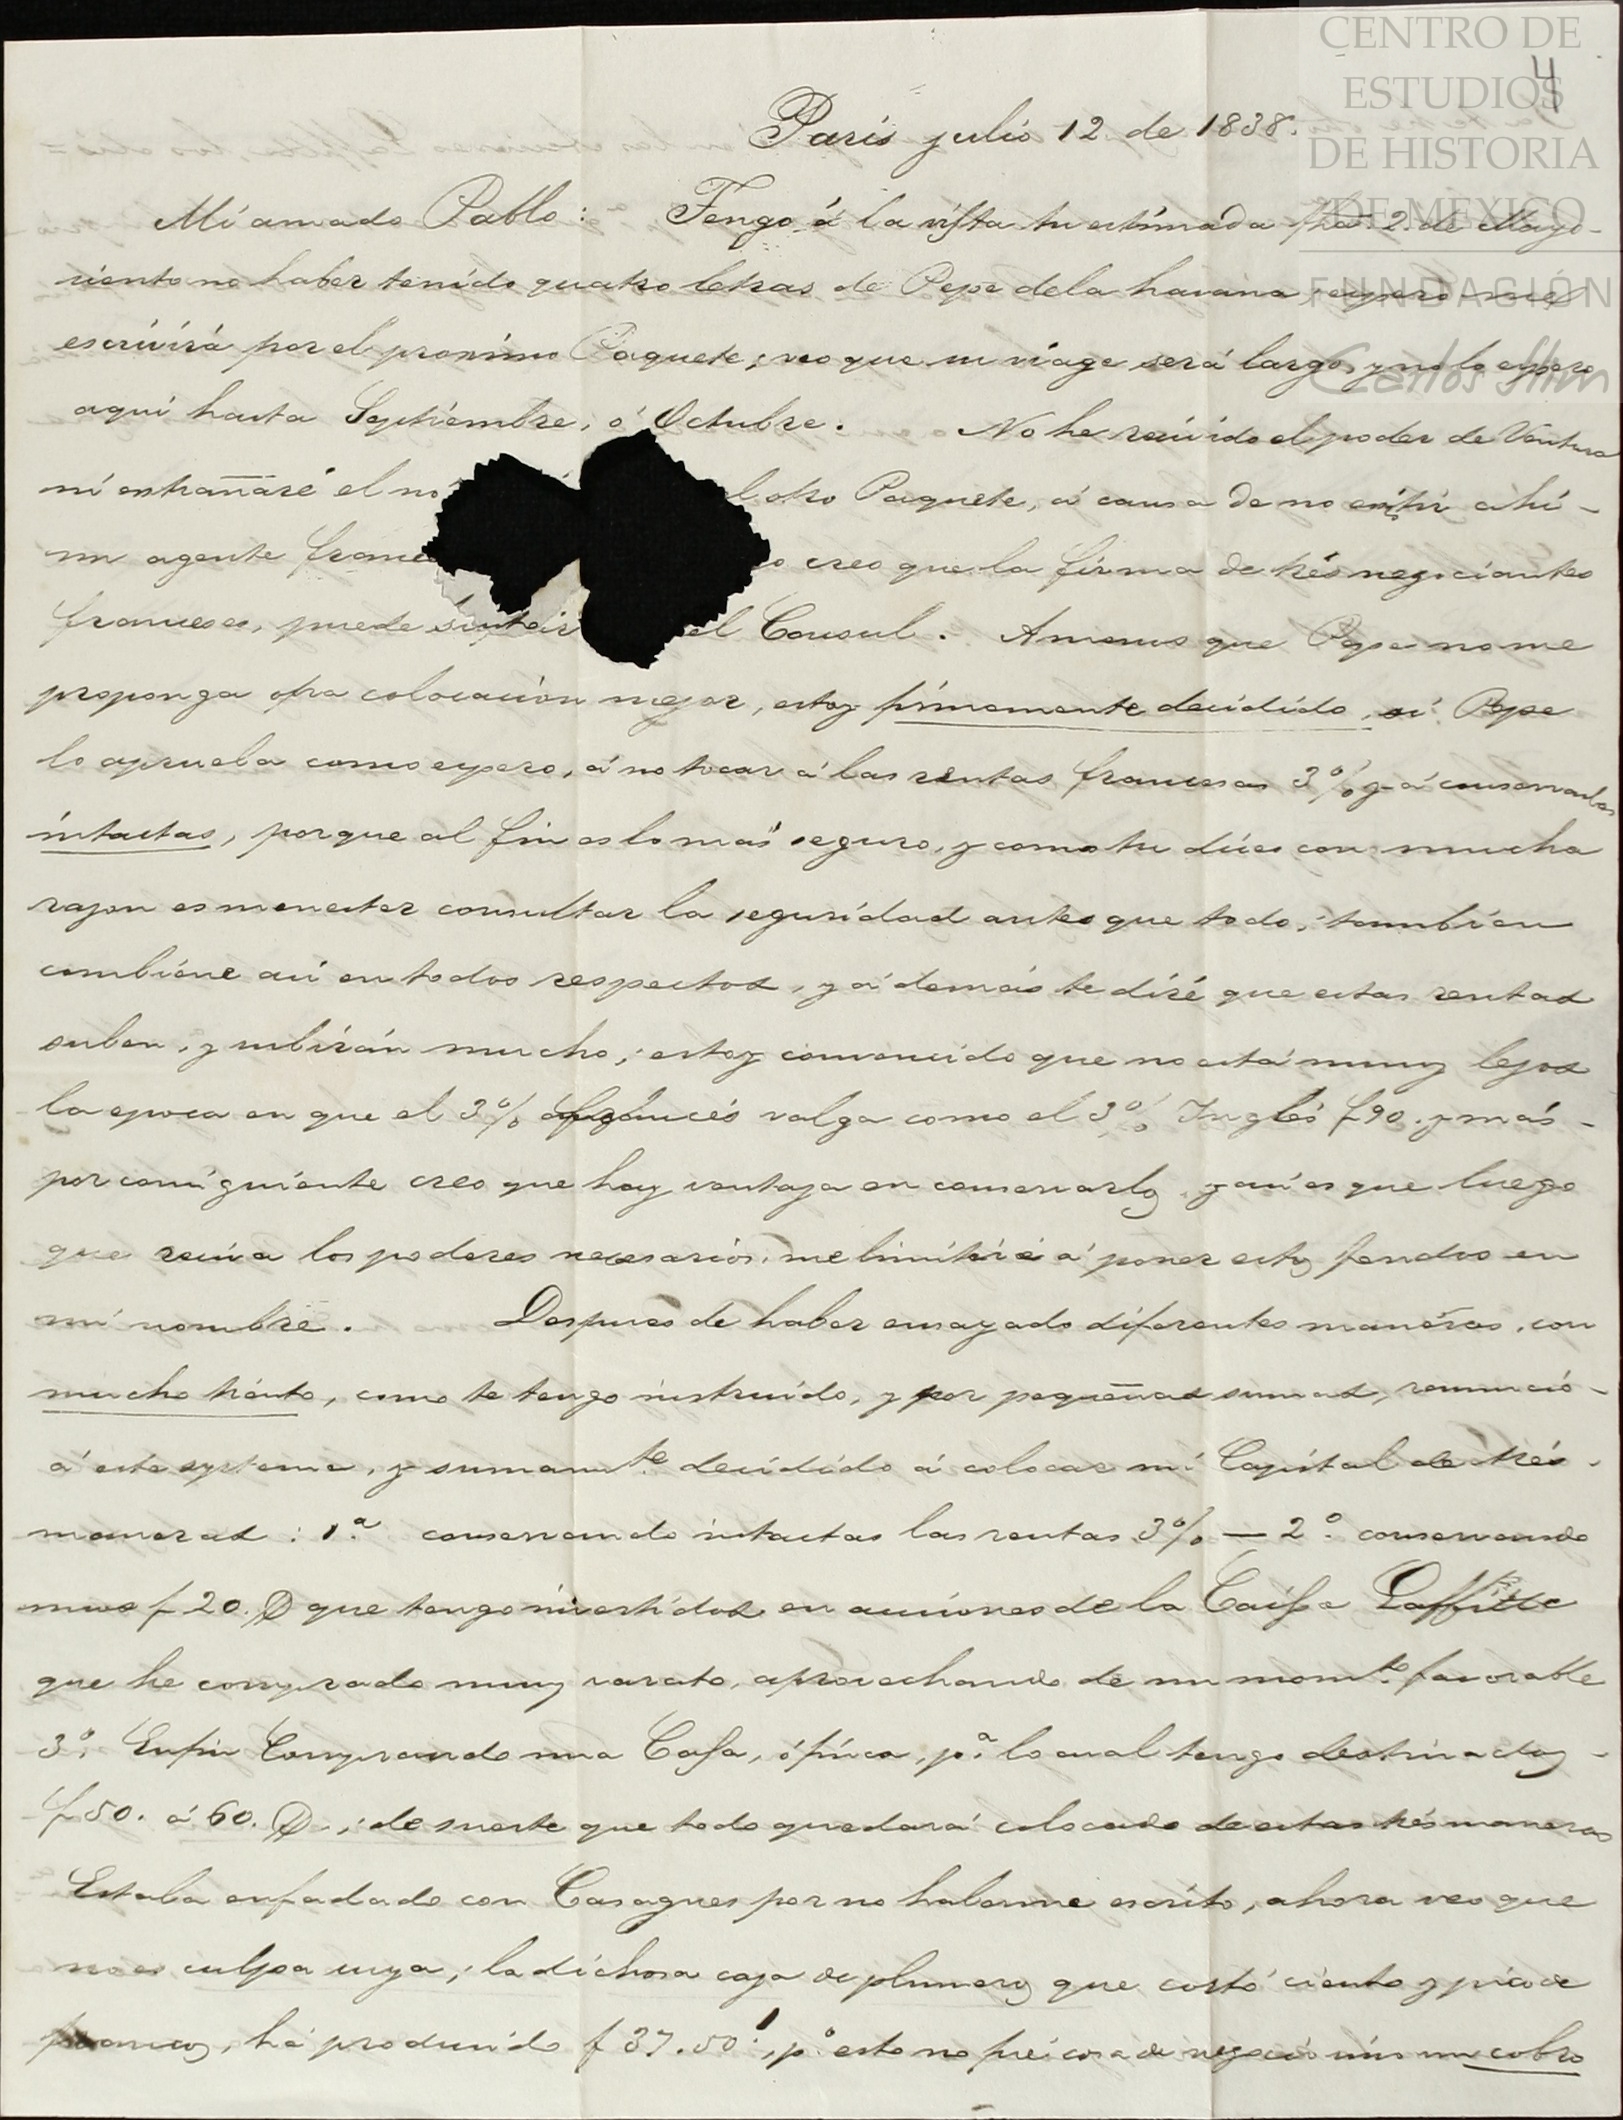 CENTRO DE
ESTUDIOS
DE HISTORIA
DE MEXICO
FUNDACIÓN
Carlos Slim
4
Paris julio 12. de 1838.
Mi amado Pablo: Tengo á la vista tu estimada fha 2. de Mayo-
siento no haber tenido quatro letras de Pepe dela havana, espero me
escrivirá por el proximo Paquete; veo que su viage será largo, y no lo espero
aqui hasta Septiembre, ó Octubre. No he recivido el poder de Ventura
ni estrañaré el no el otro Paquete, á causa de no existir ahi-
un agente france o creo que la firma de trés negociantes
franceses, puede el Consul. Amenos que Pepe no me
proponga otra colocacion mejor, estoy firmemente decidido, si Pepe
lo aprueba como espero, á no tocar á las rentas francesas 3% y á conservarlas
intactas, porque al fin es lo más seguro, y como tu dices con mucha
razon es menester consultar la seguridad antes que todo; tambien
combiene asi en todos respectos, y á demás te diré que estas rentas
suben, y subirán mucho; estoy convencido que no está muy lejos
la epoca en que el 3% francés valga como el 3% Inglés f 90. y más-
por consiguiente creo que hay ventaja en conservarlos, y asi es que luego
que reciva los poderes necesarios, me limitaré á poner estos fondos en
mi nombre. Despues de haber ensayado diferentes maneras, con
mucho tiento, como te tengo instruido, y por pequeñas sumas, renunció-
á este systema, y sumamte decidido á colocar mi Capital de trés-
maneras: 1.ª conservando intactas las rentas 3% — 2.º conservando
unos f 20. que tengo invertidos en acciones de la Caissa Laffitte
que he comprado muy varato, aprovechando de un momto. favorable
3.º Enfin Comprando una Casa, ó finca, pª. lo cual tengo destinados-
f 50. á 60. ; de suerte que todo quedará colocado de estas trés maneras
Estaba enfadado con Casagues por no haberme escrito, ahora veo que
no es culpa suya; la dichosa caja de plumeros que costó ciento y pico de
francos, há producido f 37.50; pº. esto no fué cosa de negocio sino un cobro